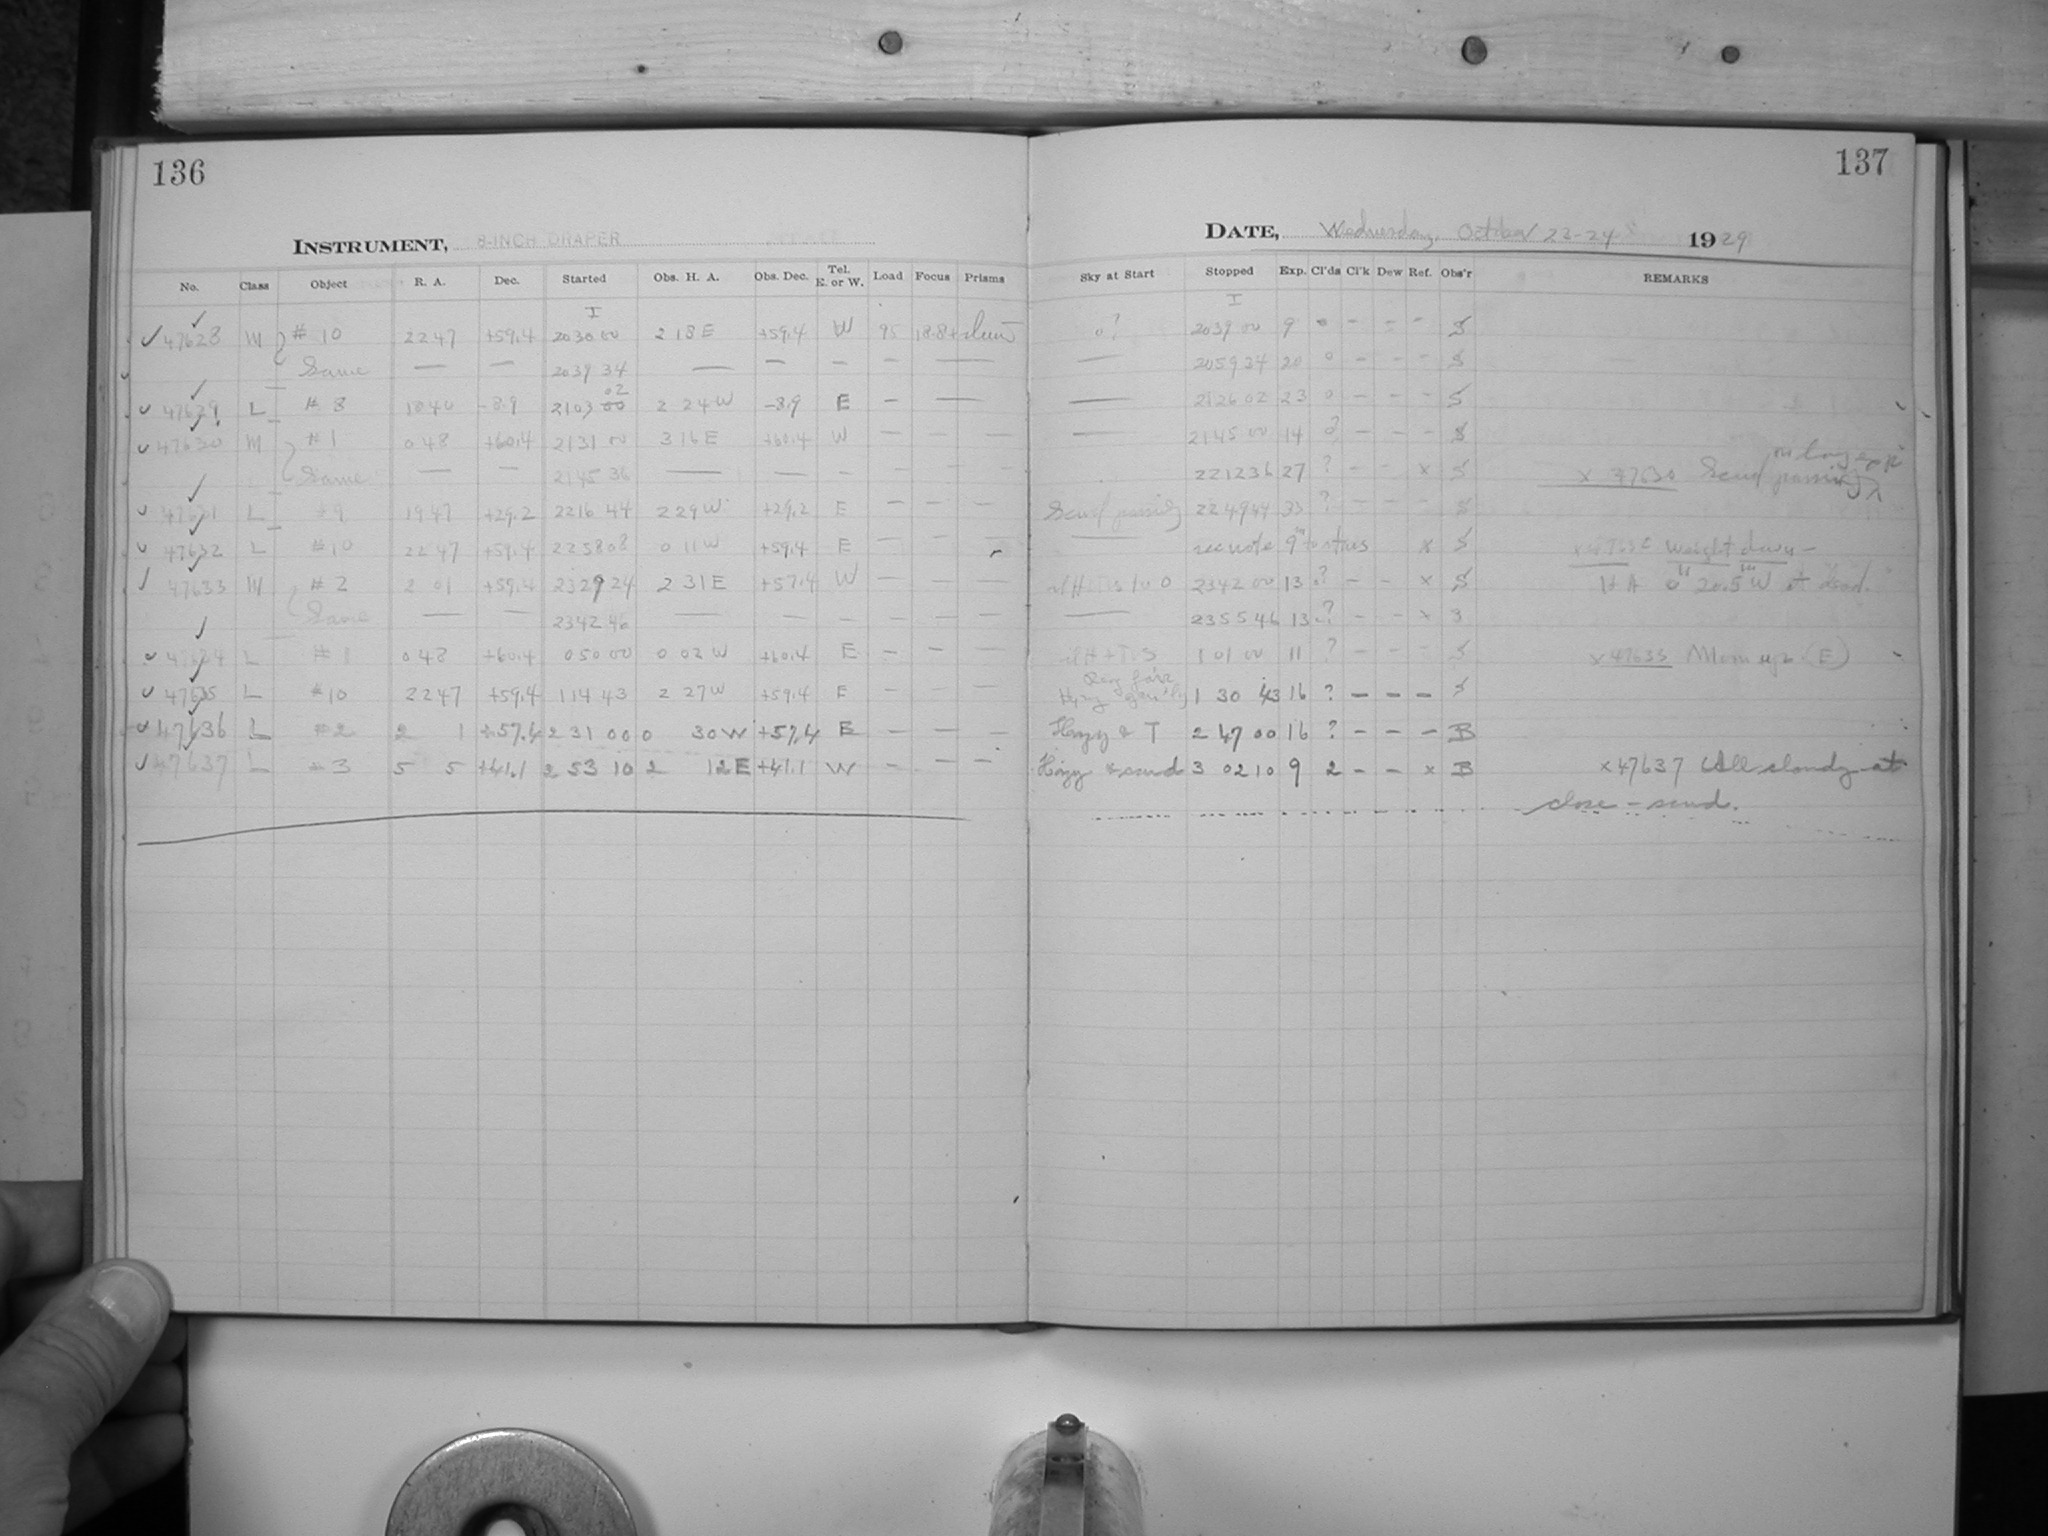 136
INSTRUMENT, 8-INCH DRAPER
No. Class Object R. A. Dec. Started Obs. H. A. Obs. Dec. Tel. E. or W. Load Focus Prisms
I
47628 M # 10 22 47 +59.4 20 30 00 2 18 E +59.4 W 95 18.8+
Same — — 20 39 34 — — — — — —
47629 L # 8 18 40 -8.9 21 03 00 02 2 24 W -8.9 E — —
47630 M # 1 0 48 +60.4 21 31 00 3 16 E +60.4 W — — —
Same — — 21 45 36 — — — — — —
47631 L # 9 19 47 +29.2 22 16 44 2 29 W +29.2 E — — —
47632 L # 10 22 47 +59.4 22 58 08 0 11 W +59.4 E — —
47633 M # 2 2 01 +59.4 23 29 24 2 31 E +57.4 W — — —
Same — — 23 42 46 — — — — — —
47634 L # 1 0 48 +60.4 0 50 00 0 02 W +60.4 E — — —
47635 L # 10 22 47 +59.4 1 14 43 2 27 W +59.4 E — — —
47636 L # 2 2 1 +57.4 2 31 00 0 30 W +57.4 E — — —
47637 L # 3 5 5 +41.1 2 53 10 2 12 E +41.1 W — — —
137
DATE, Wednesday, October 23-24 1929
Sky at Start Stopped Exp. Cl'ds Cl'k Dew Ref. Obs'r REMARKS
I
0? 20 39 00 9 0 — — — S
— 20 59 34 20 0 — — — S
— 21 26 02 23 0 — — — S
— 21 45 00 14 0? — — — S
22 12 36 27 ? — — x S x 47630 Scud passing on long exp
Scud passing 22 49 44 33 ? — — — S
— see note 9m to stars x S x 47632 Weight down —
23 42 00 13 ? — — x S H A 0h 20.5m W at dead.
— 23 55 46 13 ? — — x S
1 01 00 11 ? — — — S x 47633 Moon up (E)
Hazy 1 30 43 16 ? — — — S
Hazy & T 2 47 00 16 ? — — — B
Hazy & scud 3 02 10 9 2 — — x B x 47637 All cloudy at
close – scud.